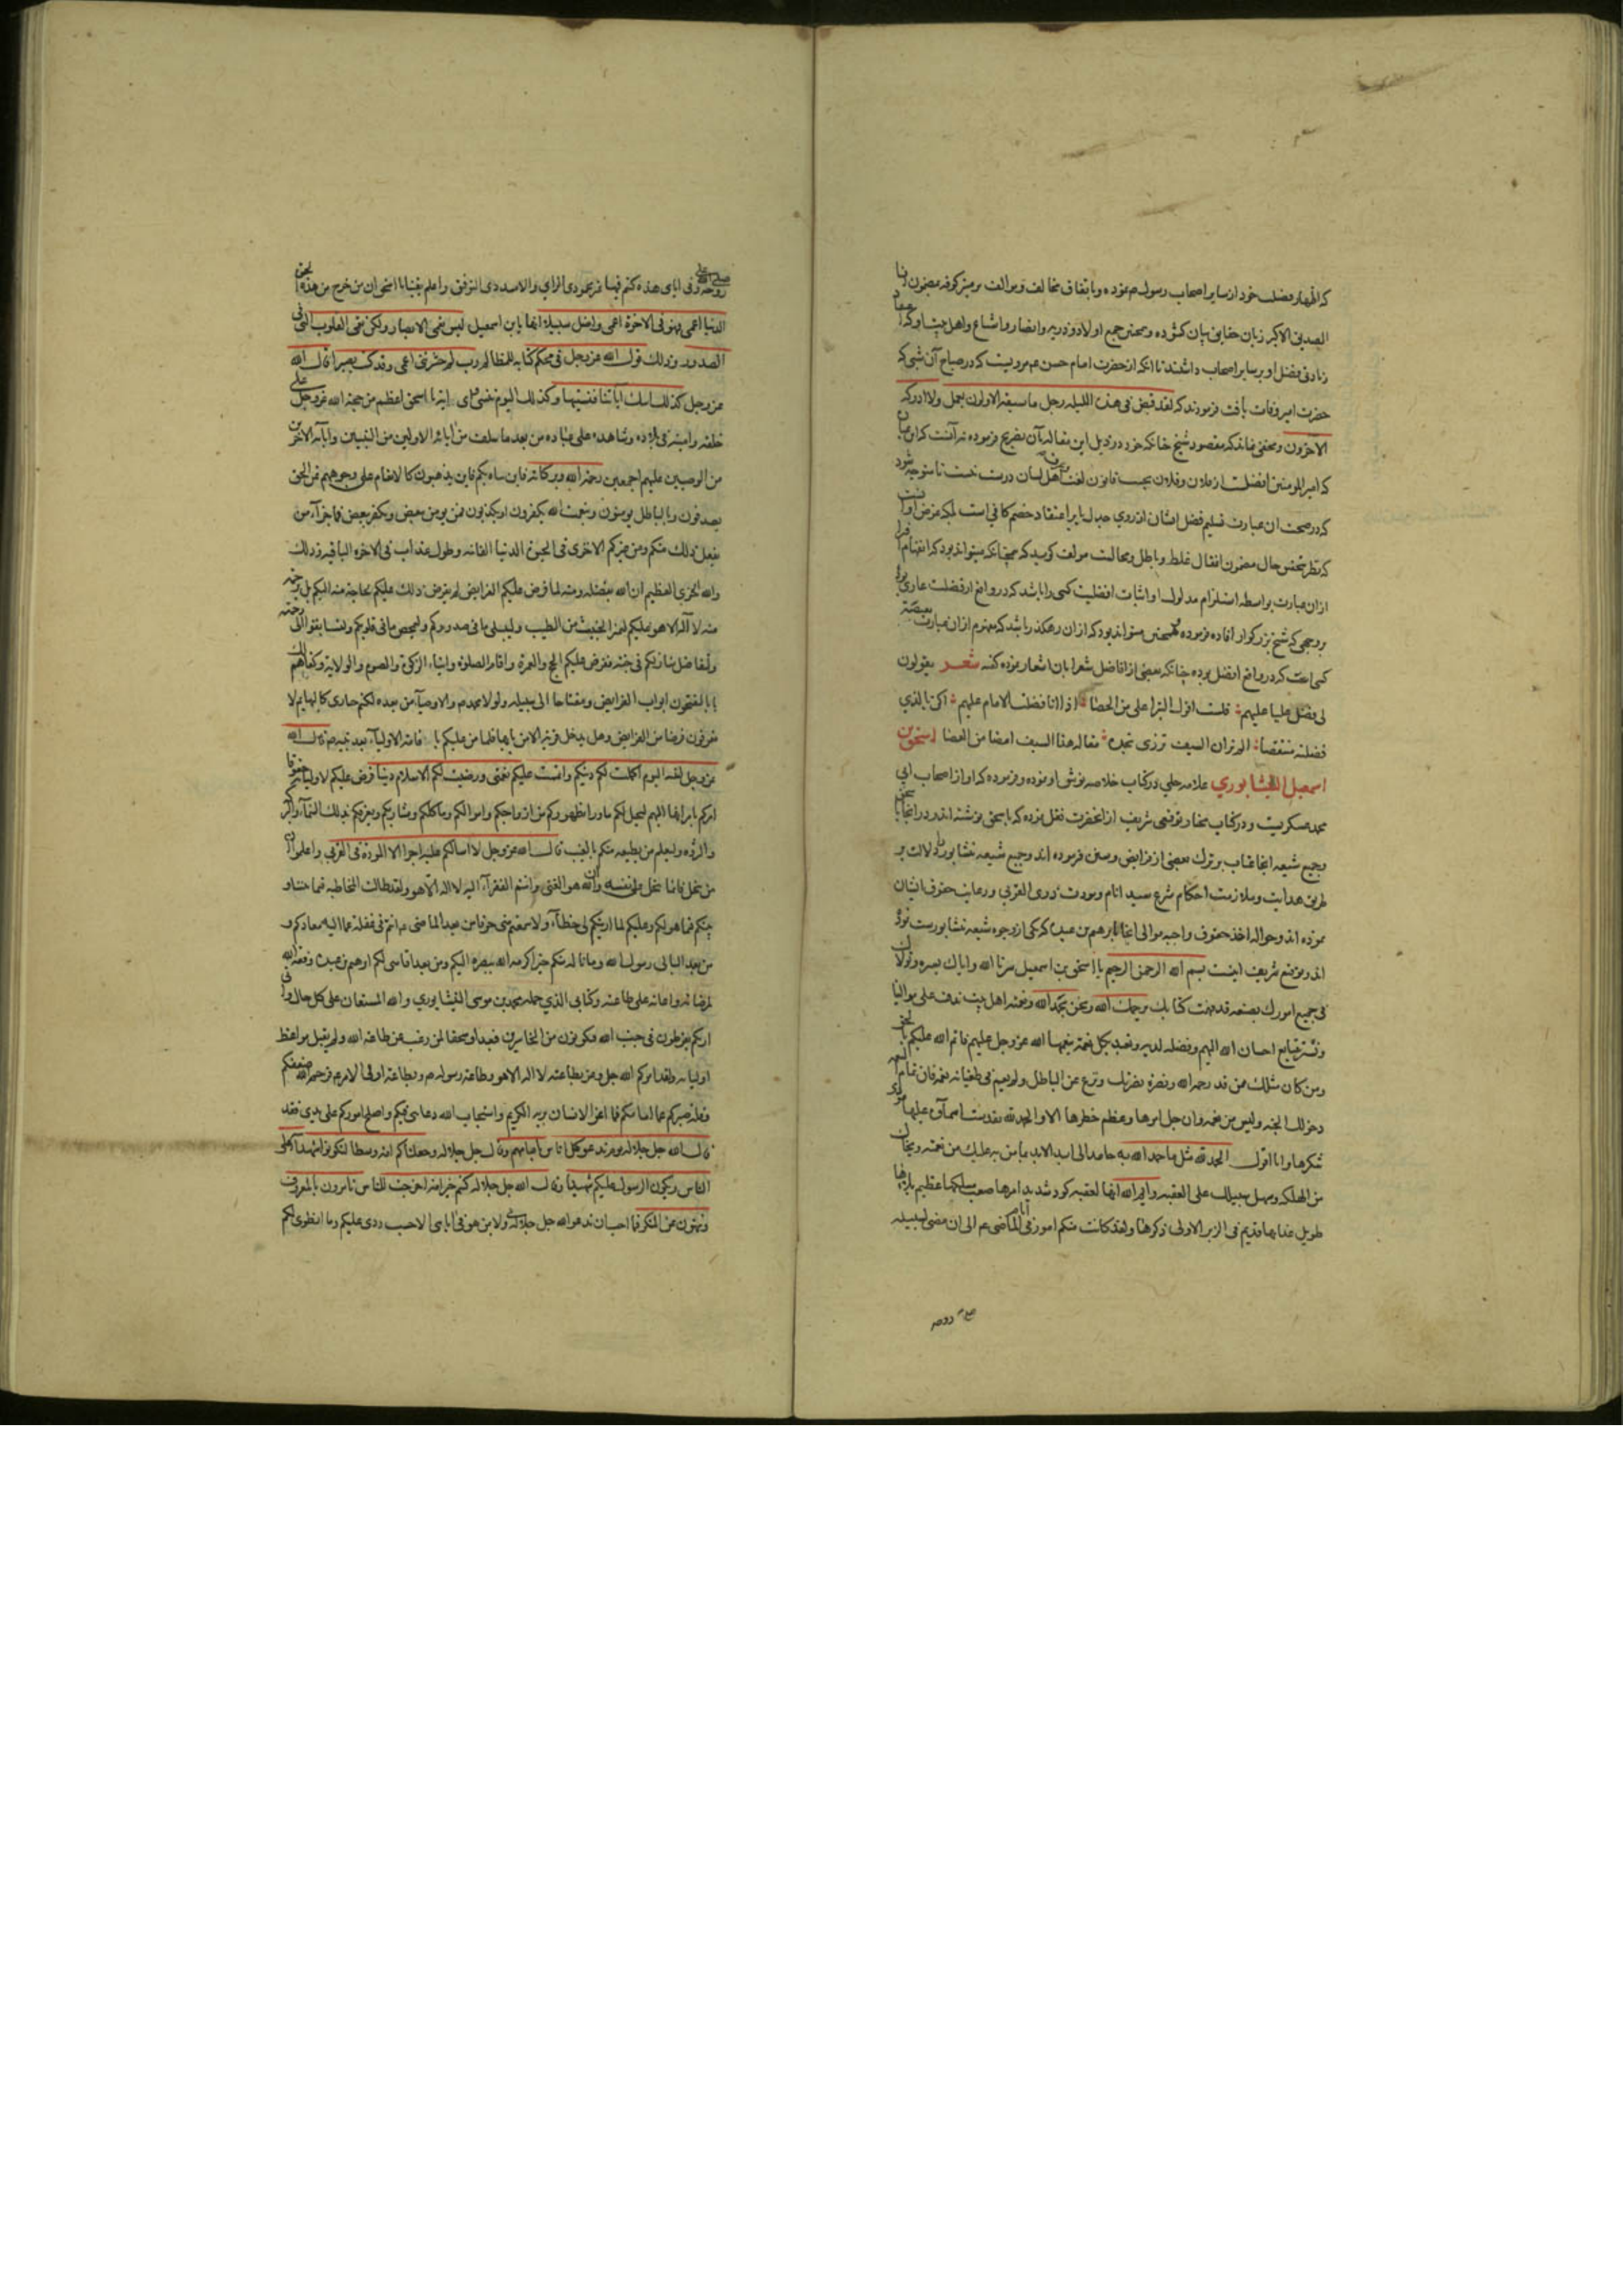 که اظهار فضلیت خود از سایر اصحاب رسول م نموده و باتفاق مخالف و موالف بر منبر کوفه بمضمون انا
الصدیق الاکبر زبان حقایق بیان کشوده و همچنین جمیع اولاد و ذریه و انصار و اشیاع و اهل بیت او که اعتقاد
زیادتی فضل او بر سایر اصحاب داشتند تا انکه از حضرت امام حسن عم مرویست که در صباح آن شبی که
حضرت امیر وفات یافت فرمودند که لقد قبض فی هذه اللیله رجل ما سبقه الاولون بعمل ولا ادرکه
الاخرون و مخفی نماند که مقصود شیخ چنانکه خود در ذیل این مقاله بآن تصریح فرموده نه آنست که این عبارت
که امیر المومنین افضلست از فلان و فلان بحسب قانون لغت اهل لسان درست نیست تا متوجه شود
که در صحت ان عبارت تسلیم فضل ایشان از روی جدل یا بر اعتقاد خصم کافی است بلکه غرض او آنست
که نظر بنفس حال مضمون انمقال غلط و باطل و بحالت مولف
ازان عبارت بواسطه استلزام مدلول او اثبات افضلیت کسی را باشد که در واقع از فضلیت عاری
بر وجهی که شیخ بزرکوار افاده فرموده همچنین میتواند بود که ازان رهکذر باشد که ازان عبارت
کسی است که در واقع افضل بوده چنانکه بعضی از افاضل شعرا بان اشعار نموده کفته شعر یقولون
لی فضل علیا علیهم قلت اقول البر اعلی من الحصا اذا انا فضلت الامام علیهم اکن بالذی
فضلته منتقصا الم تر ان السیف تزری بحده مقاله هذا السیف امضا من العصا اسحق بن
اسمعیل النیشابوری علامه حلی در کتاب خلاصه توثیق او نموده و فرموده که او از اصحاب ابی
محمد عسکریست و در کتاب مختار توقیعی شریف از انحضرت نقل نموده که باسحق نوشته اند و در انجا باسحق
و جمیع شیعه انجا عتاب بر ترک بعضی از فرایض و سنن فرموده اند و جمیع شیعه نشابور را دلالت بر
طریق هدایت و ملازمت احکام شرع سید انام و مودت ذوی القربی و رعایت حقوق ایشان
نموده اند و حواله اخذ حقوق واجبه موالی انجا بابرهیم بن عبده که یکی از وجوه شیعه نشابورست نموده
اند و توقیع شریف اینست بسم الله الرحمن الرحیم یا اسحق بن اسمعیل سترنا الله و ایاک بستره و تولاک
فی جمیع امورک بصنعه قد فهمت کتابک یرحمک الله و نحن بحمد الله و نعمته اهل بیت نرق علی موالینا
و نسر بتتابع احسان الله الیهم و فضله لدیهم و نعتد بکل نعمة ینعمها الله عز و جل علیهم فاتم الله علیکم بالحق
ومن کان مثلک ممن قد رحمه الله و نصره نصرتک و نزع عن الباطل ولم یعم فی طغیانه نعمه فان تمام النعمه
دخولک الجنه ولیس من نعمه وان جل امرها و عظم خطرها الا والحمد لله تقدست اسمآؤه علیها مودی
شکرها وانا اقول الحمد لله مثل ما حمد الله به حامد الی ابد الابد بما من به علیک من نعمته و نجاک
من الهلکه و سهل سبیلک علی العقبه وایم الله انها لعقبه کؤد شدید امرها صعب مسلکها عظیم بلاوها
طویل عذابها قدیم فی الزبر الاولی ذکرها ولقد کانت منکم امور فی ایام الماضی عم الی ان مضی لسبیله
صلی الله علی روحه
صلی الله علی روحه وفی ایامی هذه کنتم فیها غیر محمودی الرای ولا مسددی التوفیق واعلم یقینا یا اسحق ان من خرج من هذه
الدنیا اعمی فهو فی الاخرة اعمی واضل سبیلا انها یابن اسمعیل لیس تعمی الابصار ولکن تعمی القلوب التی فی
الصدور وذلک قول الله عز وجل فی محکم کتابه للظالم رب لم حشرتنی اعمی وقد کنت بصیرا قال الله
عز وجل کذلک اتتک آیاتنا فنسیتها وکذلک الیوم تنسی وای ایة یا اسحق اعظم من حجة الله عز وجل علی
خلقه وامینه فی بلاده وشاهده علی عباده من بعد ما سلف من آبائه الاولین من النبیین وآبائه الاخرین
من الوصیین علیهم اجمعین رحمة الله وبرکاته فاین یتاه بکم واین تذهبون کالانعام علی وجوهکم عن الحق
تصدفون وبالباطل تومنون وبنعمت الله تکفرون او تکذبون فمن یومن ببعض ویکفر ببعض فما جزآء من
یفعل ذلک منکم ومن غیرکم الا خزی فی الحیوة الدنیا الفانیه وطول عذاب فی الاخرة الباقیه وذلک
والله الخزی العظیم ان الله بفضله ومنه لما فرض علیکم الفرایض لم یفرض ذلک علیکم لحاجة منه الیکم بل برحمة
منه لا اله الا هو علیکم لیمیز الخبیث من الطیب ولیبتلی ما فی صدورکم ولیمحص ما فی قلوبکم ولتسابقوا الی رحمته
ولتفاضل منازلکم فی جنته ففرض علیکم الحج والعمرة واقام الصلوة وایتاء الزکوة والصوم والولایة وکفاهم لکم
بابا لتفتحون ابواب الفرایض ومفتاحا الی سبیله ولولا محمد م والاوصیآء من بعده لکنتم حیاری کالبهایم لا
تعرفون فرضا من الفرایض وهل یدخل قریة الا من بابها فلما من علیکم باقامة الاولیآء بعد نبیه م قال الله
عز وجل لنبیه الیوم اکملت لکم دینکم واتممت علیکم نعمتی ورضیت لکم الاسلام دینا وفرض علیکم لاولیائه حقوقا
امرکم بادائها الیهم لیحل لکم ما ورا ظهورکم من ازواجکم واموالکم وماکلکم ومشاربکم ویعرفکم بذلک النمآء والبرکة
والثروه ولیعلم من یطیعه منکم بالغیب قال الله عز وجل لا اسالکم علیه اجرا الا المودة فی القربی واعلموا ان
من یبخل فانما یبخل علی نفسه وان الله هو الغنی وانتم الفقرآء الیه لا اله الا هو ولقد طالت المخاطبه فیما بیننا و
بینکم فیما هو لکم وعلیکم
من بعد الثانی رسول الله وما ناله منکم حین اکرمه الله بمصیره الیکم ومن بعد اقامتی لکم ابرهیم بن عبده وفقه الله
لمرضاته واعانه علی طاعته وکتابی الذی حمله محمد بن موسی النیشابوری والله المستعان علی کل حال وانی
اریکم تفرطون فی جنب الله فتکونون من الخاسرین فبعدا وسحقا لمن رغب عن طاعة الله ولم یقبل مواعظ
اولیائه ولقد امرکم الله جل وعز بطاعته لا اله الا هو وطاعة رسوله م وبطاعة اولی الامر عم فرحم الله ضعفکم
وقلة صبرکم عما امامکم فما اغر الانسان بربه الکریم واستجاب الله دعائی فیکم واصلح امورکم علی یدی فقد
قال الله جل جلاله یوم ندعو کل اناس بامامهم وقال جل جلاله وجعلناکم امة وسطا لتکونوا شهدآء علی
الناس ویکون الرسول علیکم شهیدا وقال الله جل جلاله کنتم خیر امة اخرجت للناس تامرون بالمعروف
وتنهون عن المنکر فما احب ان یدعو الله جل جلاله بی ولا بمن هو فی ایامی الا حسب رقتی علیکم وما انطوی لکم